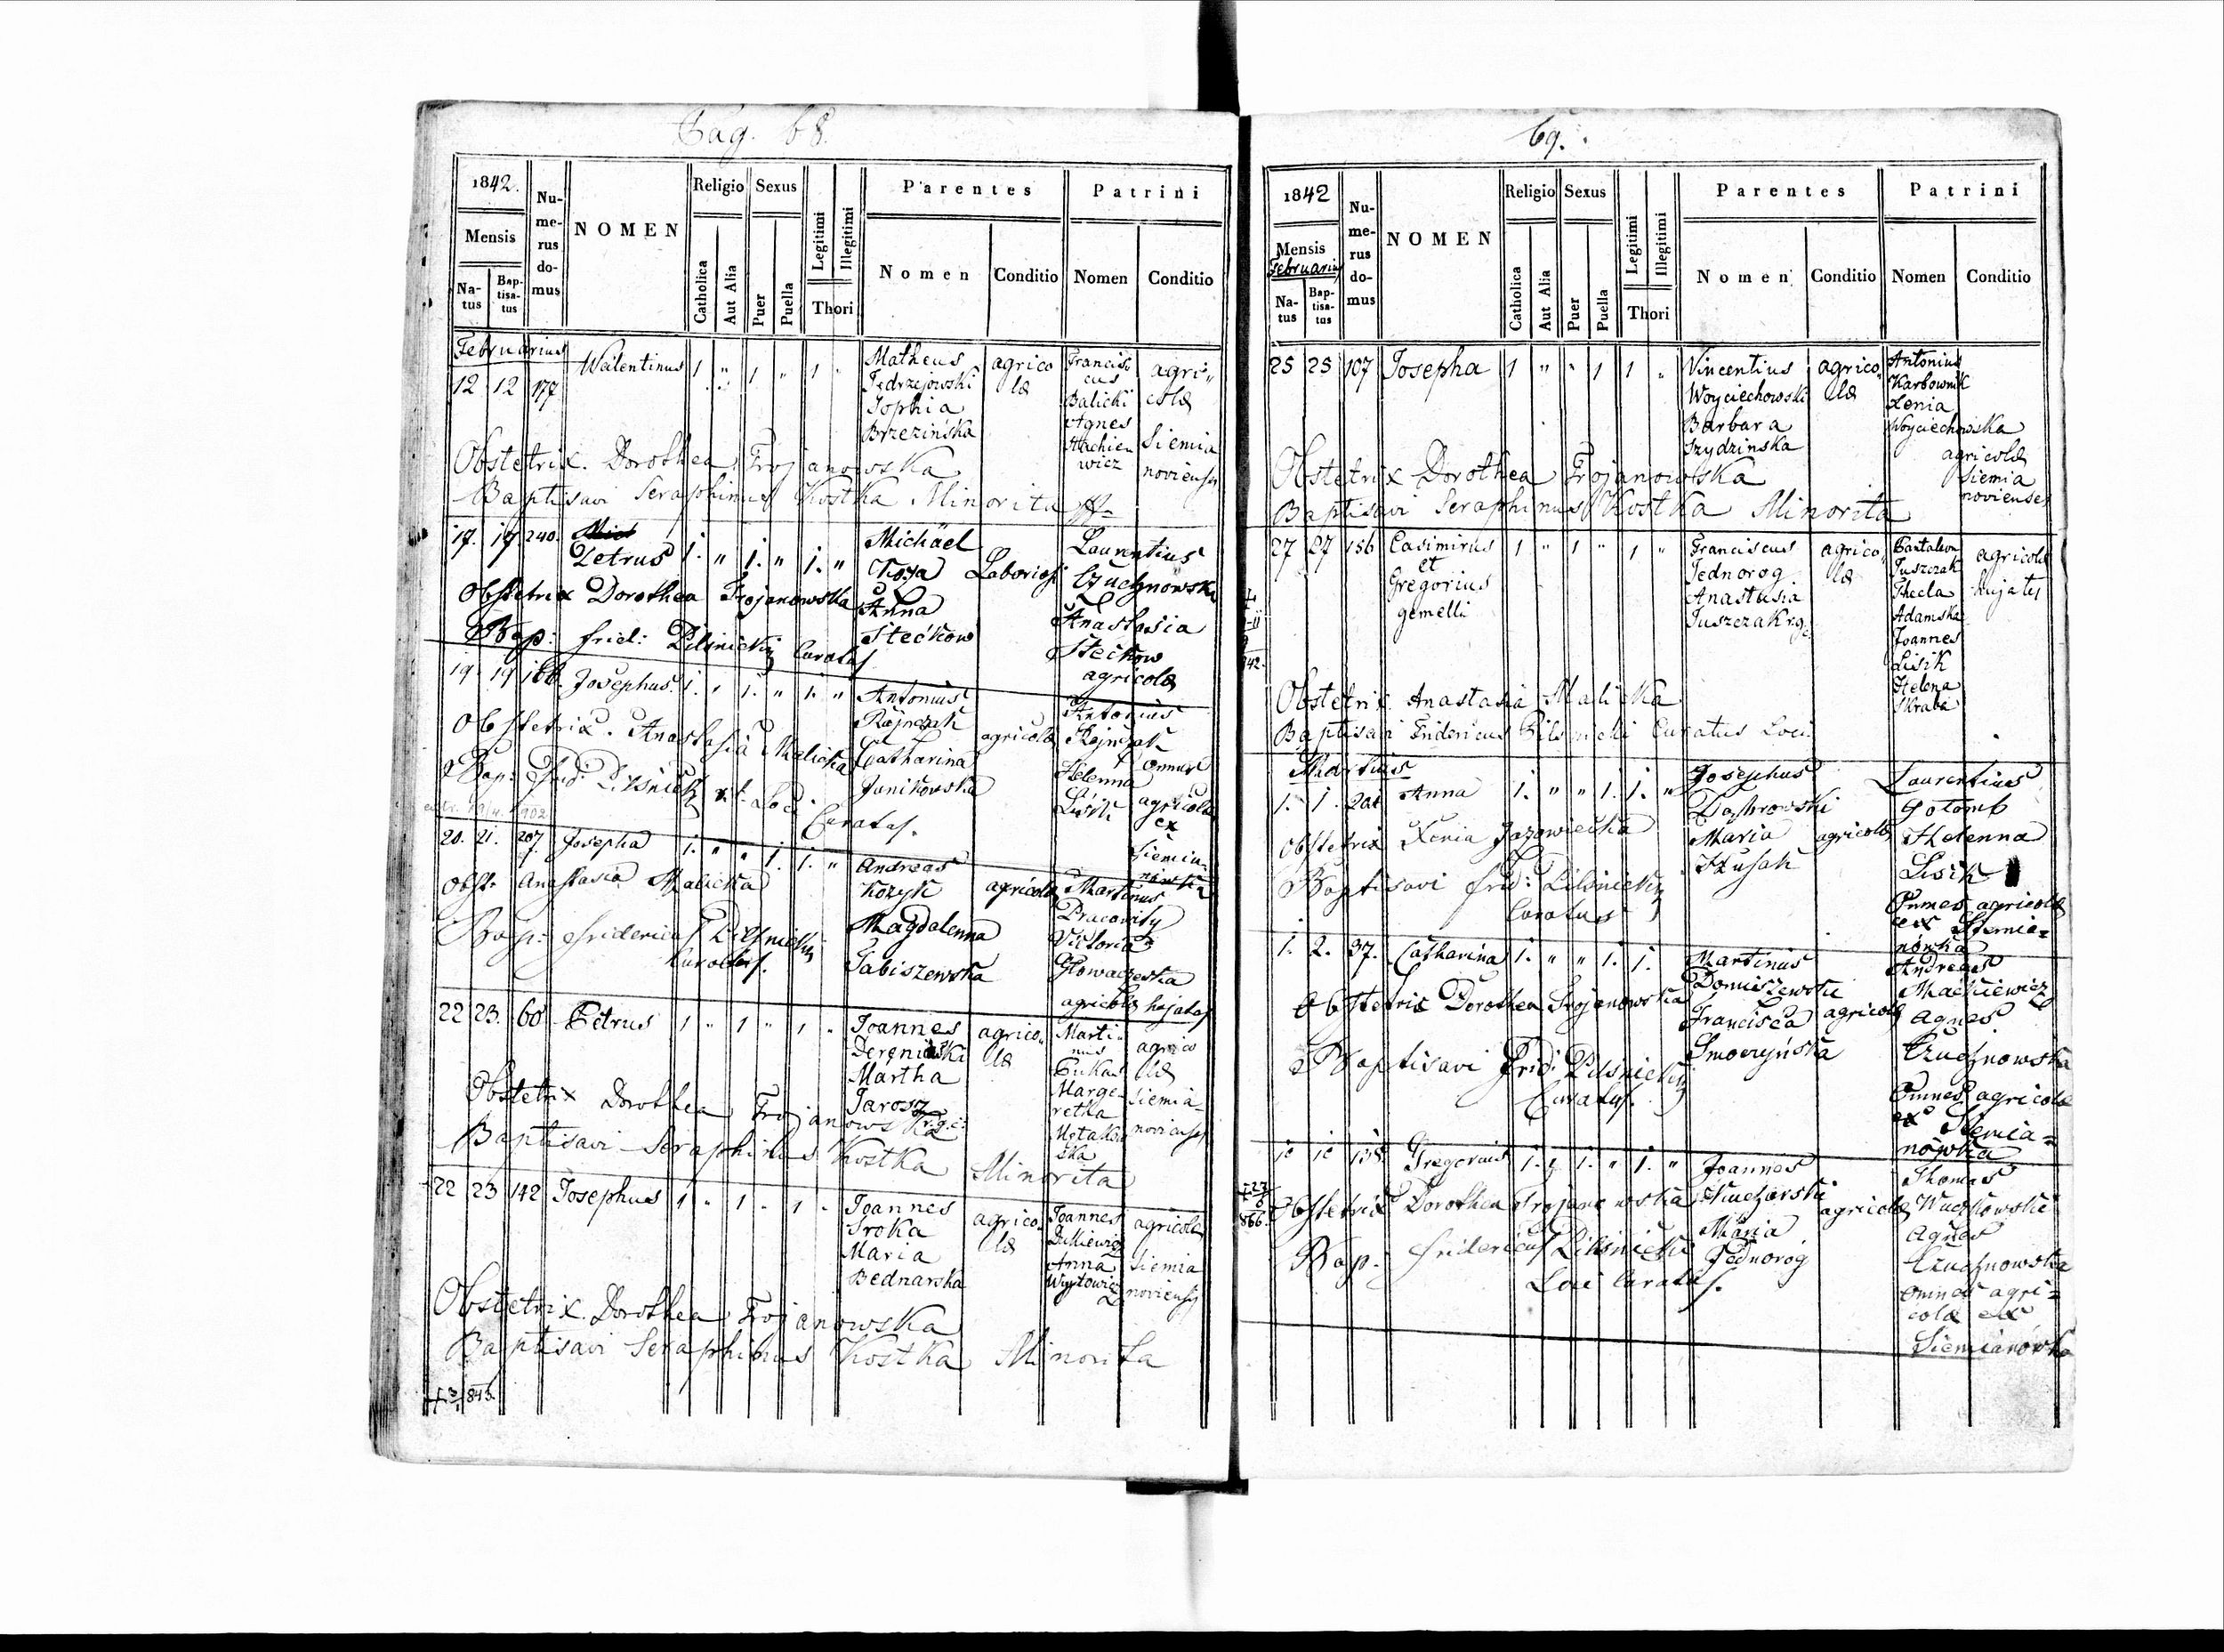 Pag. 68.
1842.
Mensis
Na-
tus
Bap-
tisa-
tus
Nu-
me-
rus
do-
mus
NOMEN
Religio
Catholica
Aut Alia
Sexus
Puer
Puella
Legitimi
Illegitimi
Thori
Parentes
Nomen
Conditio
Patrini
Nomen
Conditio
Februarius
12 12 177 Walentinus 1 " 1 " 1 "
Matheus
Jędrzejowski
Sophia
Brzezińska
agrico
læ
Francis
cus
Balicki
Agnes
wicz
agri
colæ
Siemia
novienses
Obstetrix. Dorothea Trojanowska
Baptisavi Seraphinus Kostka Minorita
17. 17. 240. Petrus 1. " 1. " 1. "
Michäel
Koza
Anna
Stećkow
Laboriosi
Laurentius
Czuchnowski
Anastasia
Stećkow
agricolæ
Obstetrix Dorothea Trojanowska
Bap: frid: Pilsnicki Curatus
19 19 166. Josephus. 1. " 1. " 1. "
Antonius
Rejnczak
Catharina
Janikowska
agricolæ
Antonius
Rejnczak
Helenna
Lisik
omnes
agricolæ
ex
Siemia
nówka
Obstetrix. Anastasia Malicka
Bap: Frid: Pilsnicki
Curatus.
20. 21. 207. Josepha 1. " " 1. 1. "
Andreas
Kozyk
Magdalenna
Tabiszewska
agricolæ
Martinus
Pracovity
Victoria
Głowaczeska
agricolæ hujates
Obst. Anastasia Malicka
Bap: Fridericus Pilsnicki
Curatus.
22 23. 60 Petrus 1 " 1 " 1 "
Joannes
Dereniowski
Martha
Jarosz
agrico
læ
Marti
nus
Pukas
Marge
retha
Mętakow
ska
agrico
læ
Siemia
novienses
Obstetrix Dorothea Trojanowska
Baptisavi Seraphinus Kostka Minorita
22 23 142 Josephus 1 " 1 " 1 "
Joannes
Sroka
Maria
Bednarska
agrico
læ
Joannes
Dutkiewicz
Anna
Wojtowicz
agricolæ
Siemia
novienses
Obstetrix. Dorothea Trojanowska
Baptisavi Seraphinus Kostka Minorita
69.
1842
Mensis
Februarius
Na-
tus
Bap-
tisa-
tus
Nu-
me-
rus
do-
mus
NOMEN
Religio
Catholica
Aut Alia
Sexus
Puer
Puella
Legitimi
Illegitimi
Thori
Parentes
Nomen
Conditio
Patrini
Nomen
Conditio
25 25 107 Josepha 1 " " 1 1 "
Vincentius
Woyciechowski
Barbara
Szydzinska
agrico
læ
Antonius
Karbownik
Xenia
Woyciechowska
agricolæ
Siemia
novienses
Obstetrix Dorothea Trojanowska
Baptisavi Seraphinus Kostka Minorita
27 27 156 Casimirus 1 " 1 " 1 "
et
Gregorius
gemelli
Franciscus
Jednorog
Anastasia
Tuszczak
agrico
læ
Pantaleon
Tuszczak
Thecla
Adamska
Joannes
Lisik
Helena
Skraba
agricolæ
hujates
Obstetrix Anastasia Malicka
Baptisavi Fridericus Pilsnicki Curatus Loci
Martius
1. 1. 201 Anna 1. " " 1. 1. "
Josephus
Dąbrowski
Maria
agricolæ
Laurentius
Gołomb
Helenna
Lisik
Omnes agricolæ
ex Siemia=
nówka
Obstetrix Xenia Jazowiecka
Baptisavi frid: Pilsnicki
Curatus
1. 2. 37. Catharina 1. " " 1. 1.
Martinus
Domiszewski
Francisca
Smoczyńska
agricolæ
Andreas
Maćkiewicz
Agnes
Czuchnowska
Omnes agricolæ
ex Siemia=
nówka
Obstetrix Dorothea Trojanowska
Baptisavi Frid: Pilsnicki
Curatus.
10 10 138 Gregorius 1. " 1. " 1. "
Joannes
Kucharski
Maria
Jednorog
agricolæ
Thomas
Wuczkowski
Agnes
Czuchnowska
omnes agri=
colæ ex
Siemianówka
Obstetrix Dorothea Trojanowska
Bap: Fridericus Pilsnicki
Loci Curatus.